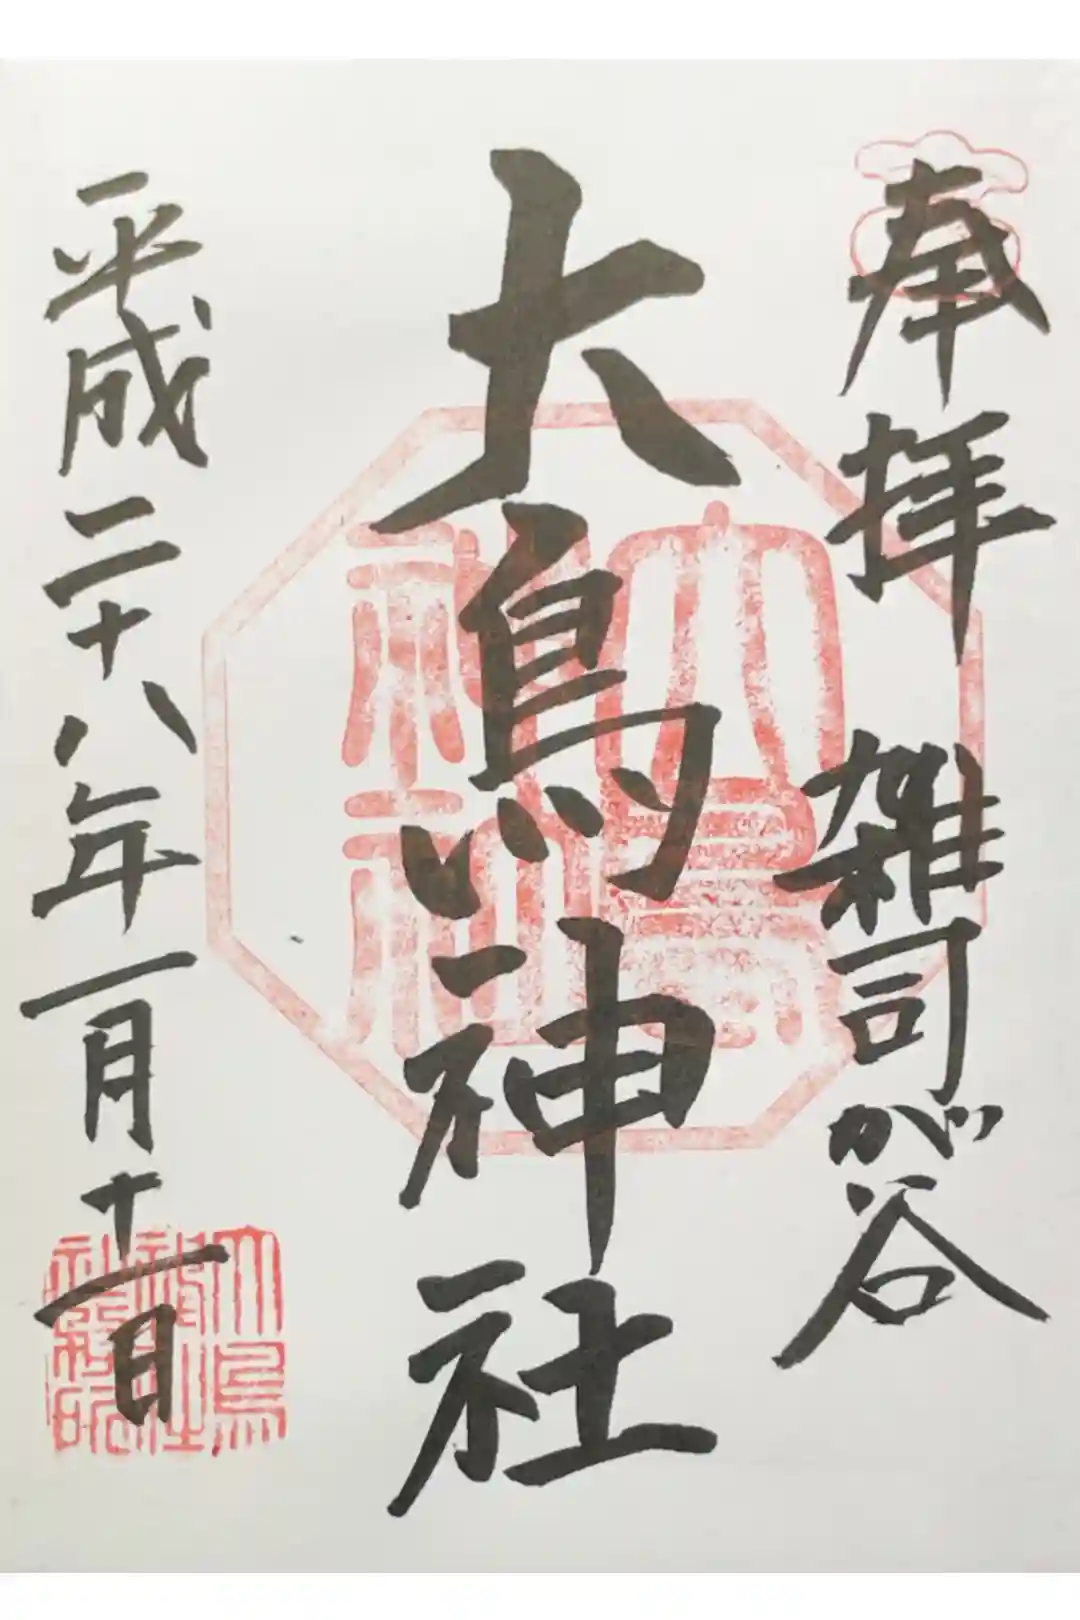 奉拝 雑司が谷
大鳥神社
平成二十八年一月十一日
大鳥
神社
大鳥
神社
社務所